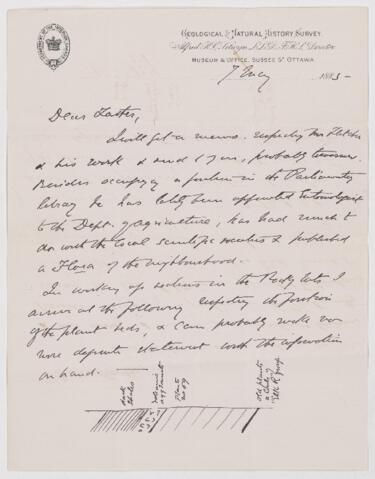 GEOLOGICAL & NATURAL HISTORY SURVEY.
Alfred R.C. Selwyn L.L.D. F.R.S. Director
MUSEUM & OFFICE, SUSSEX ST OTTAWA
7 May 1885
Dear Father,
I will get a memo. respecting Mr Fletcher
& his work & send to you, probably tomorrow.
Besides occupying a position in the Parliamentary
Library he has lately been appointed Entomologist
to the Dept. of Agriculture, has had much to
do with the local scientific societies & published
a Flora of the neighbourhood.
In working up sections in the Rocky Mts I
arrive at the following respecting the position
of the plant beds, & can probably make no
more definite statement with the information
on hand.
Dark Shales
Volcanic agglomerate
Plants
Old plants
group